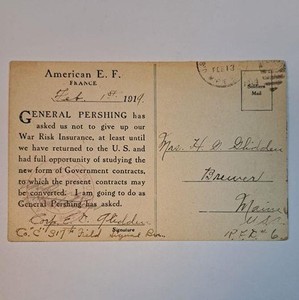 American E. F.
FRANCE
Feb. 1st 1919.
GENERAL PERSHING has
asked us not to give up our
War Risk Insurance, at least until
we have returned to the U. S. and
had full opportunity of studying the
new form of Government contracts,
to which the present contracts may
be converted. I am going to do as
General Pershing has asked.
Corp. E. D. Glidden
Signature
Co. "C" 317th Field Signal Bn.
FEB 13
Soldiers
Mail
Mrs. H. D. Glidden
Brewer
Maine
U.S.
R.F.D. #6